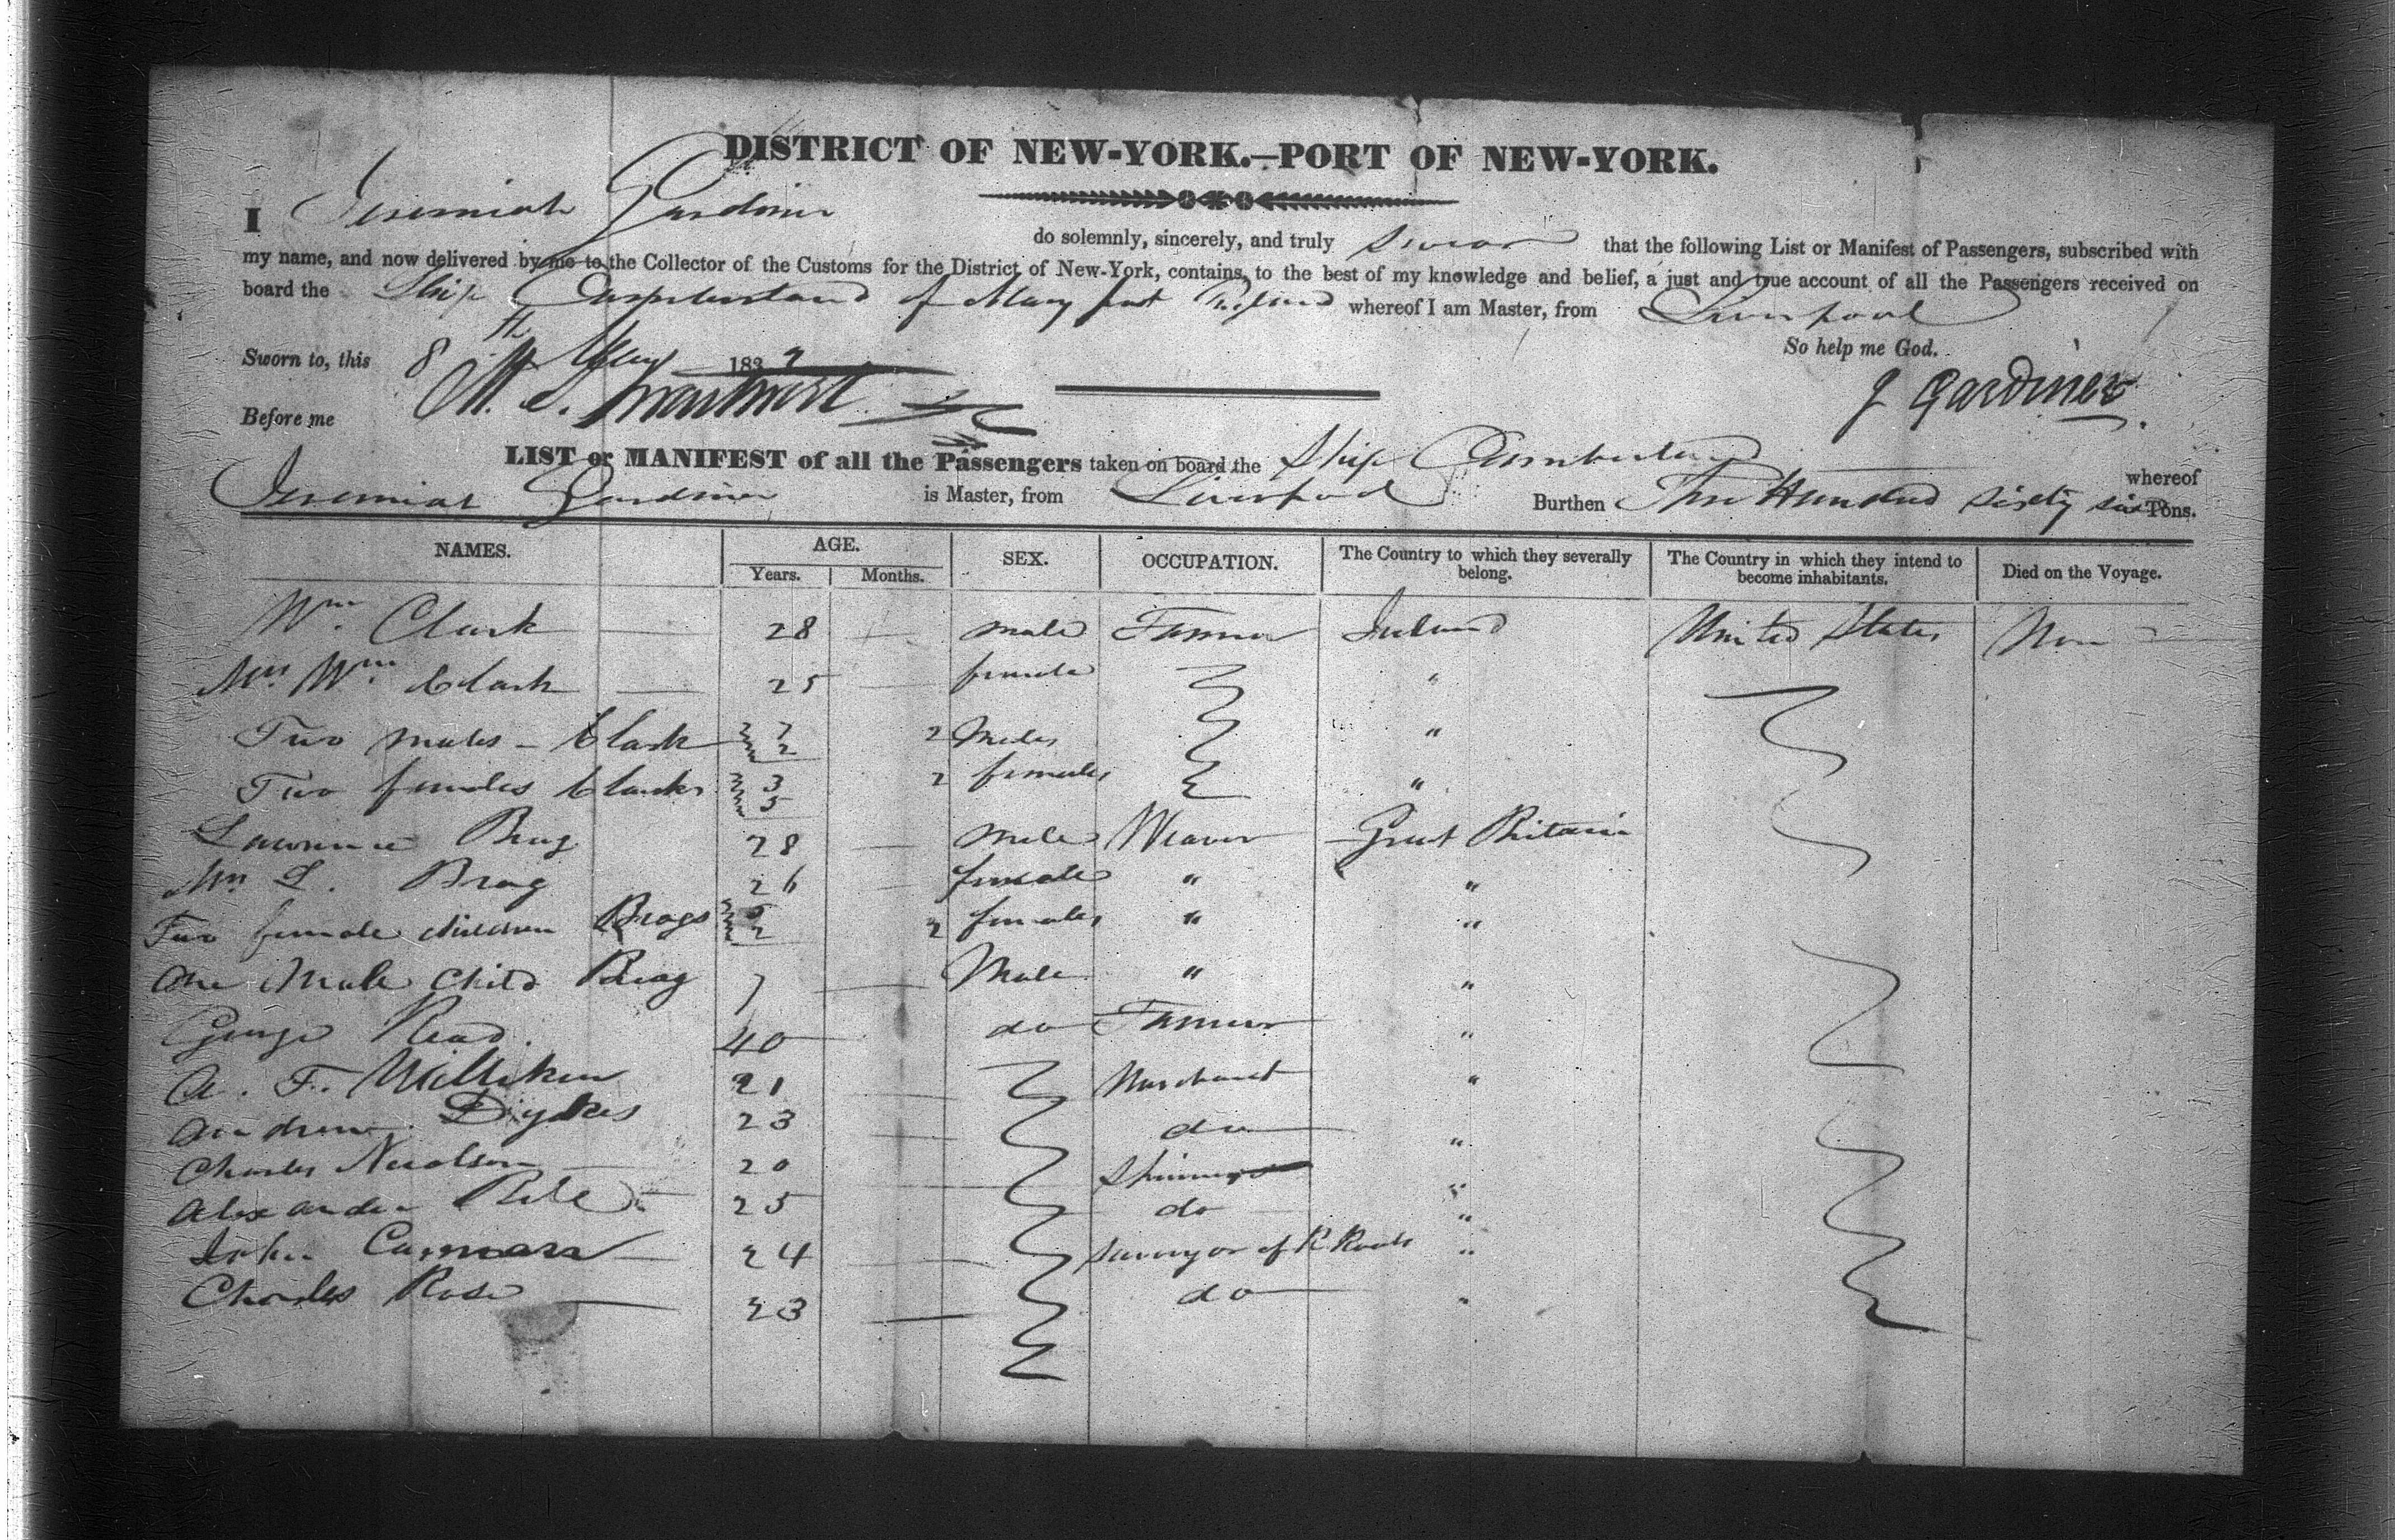 DISTRICT OF NEW-YORK.—PORT OF NEW-YORK.
I Jeremiah Gardiner do solemnly, sincerely, and truly swear that the following List or Manifest of Passengers, subscribed with
my name, and now delivered by me to the Collector of the Customs for the District of New-York, contains, to the best of my knowledge and belief, a just and true account of all the Passengers received on
board the Ship Cumberland of Mary port whereof I am Master, from Liverpool
So help me God.
Sworn to, this 8th May 183
J Gardiner
Before me
LIST or MANIFEST of all the Passengers taken on board the Ship Cumberland whereof
Jeremiah Gardiner is Master, from Liverpool Burthen Three Hundred sixty six Tons.
NAMES. AGE. SEX. OCCUPATION. The Country to which they severally belong. The Country in which they intend to become inhabitants. Died on the Voyage.
Years. Months.
Wm. Clark — 28 — male Farmer Ireland United States None
Mrs. Wm. Clark — 25 — female "
Two males - Clark 7 2 2 Males "
Two females Clarks 3 5 2 females "
Lawrence Brag 28 — male Weaver Great Britain
Mrs L. Brag 26 — female " "
Two female children Brags 5 2 2 females " "
One Male Child Brag 7 — Male " "
George Read. 40 do Farmer "
A. F. Milliken 21 — Merchant "
Andrew Dykes 23 — do "
Charles Nicolson — 20 — "
Alexander — 25 — do "
John — 24 — Surveyor of R Roads "
Charles Rose — 23 — do "